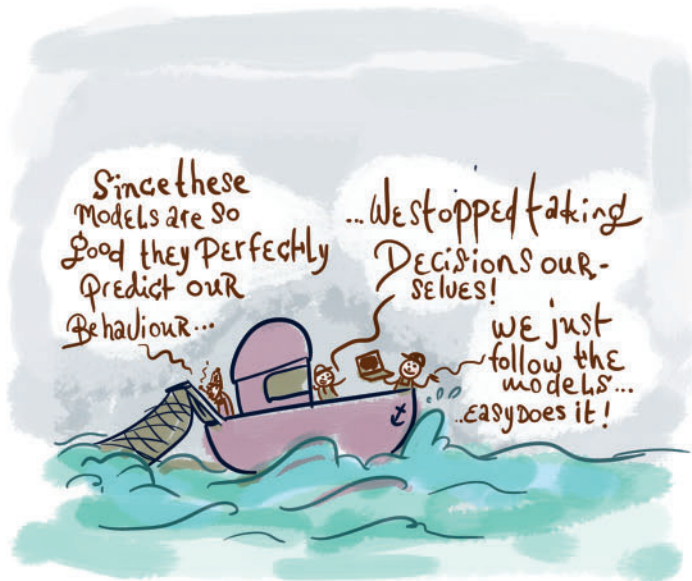 Since these
Models are so
good they perfectly
predict our
Behaviour...
...We stopped taking
Decisions our-
selves!
we just
follow the
models...
..easy Does it!